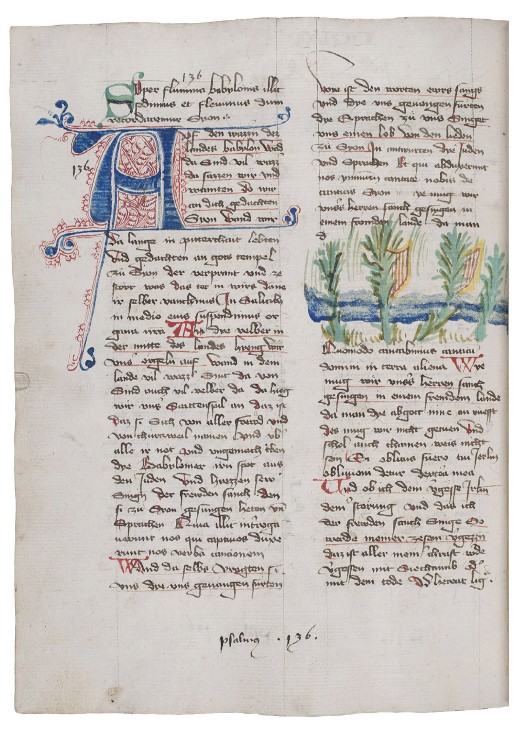 136
Super flumina babylonis illic
sedimus et flevimus dum
recordaremur Syon
136
Auf den wazzern der
landes babylon wan
da Sind vil wazz
da sazzen wir vnd
wainten do wir
an dich gedachten
Syon wand wir
da lange in
vnd gedachten an gots tempel
zu Syon der verprant vnd ze
stort was das tet in wirs dann
ir selber In Salicib
in medio eius suspendimus or
gana nra An die velber in
der mitte des landes hieng wir
vns orgeln auf wand in dem
lande vil wazz Sint da von
Sind auch vil velber da da hieng
wir vns Saittenspil an daz ist
daz si Sich von aller frewd vnd
von churtzweil namen vnd vb
alle ir not vnd vngemach
dye Babyloner irn spot aus
den Juden vnd hiezzen sew
Singen der frewden sanch den
si zu Syon gesungen heten vn
Sprachen Quia illic introga
uerunt nos qui captiuos duxe
runt nos verba cancionem
Wand da selbs vragten si
vns dye vns geuangen furten
von ist den worten ewrs sangs
vnd dye vns geuangen furten
dye Sprachen zu vns Singet
vns einen lob von den lieden
zu Syon In antwurten dye Juden
vnd Sprachen Et qui abduxerunt
nos ymnum cantate nobis de
canticis Syon wir
vnsers herren sanch gesingen in
einem fromden lande da man
d
Quomodo cantabimus canticu
domini in terra aliena Wye
mug wir vnsers herren sanch
gesingen in einem frendem lande
da man dye abgot inne an rufft
des mug wir nicht getuen vnd
schol auch chainen weis nicht
sein Si oblitus fuero tui Jerlm
obliuioni detur dextera mea
Vnd ob ich dem vgesse Jrlm
dem storung vnd das ich
der frewden sanch Singe So
werde meiner zesem vgezzen
daz ist aller mein chraft werde
vgessen mit Siechtumb od
mit dem tode lig
psalmus . 136 .